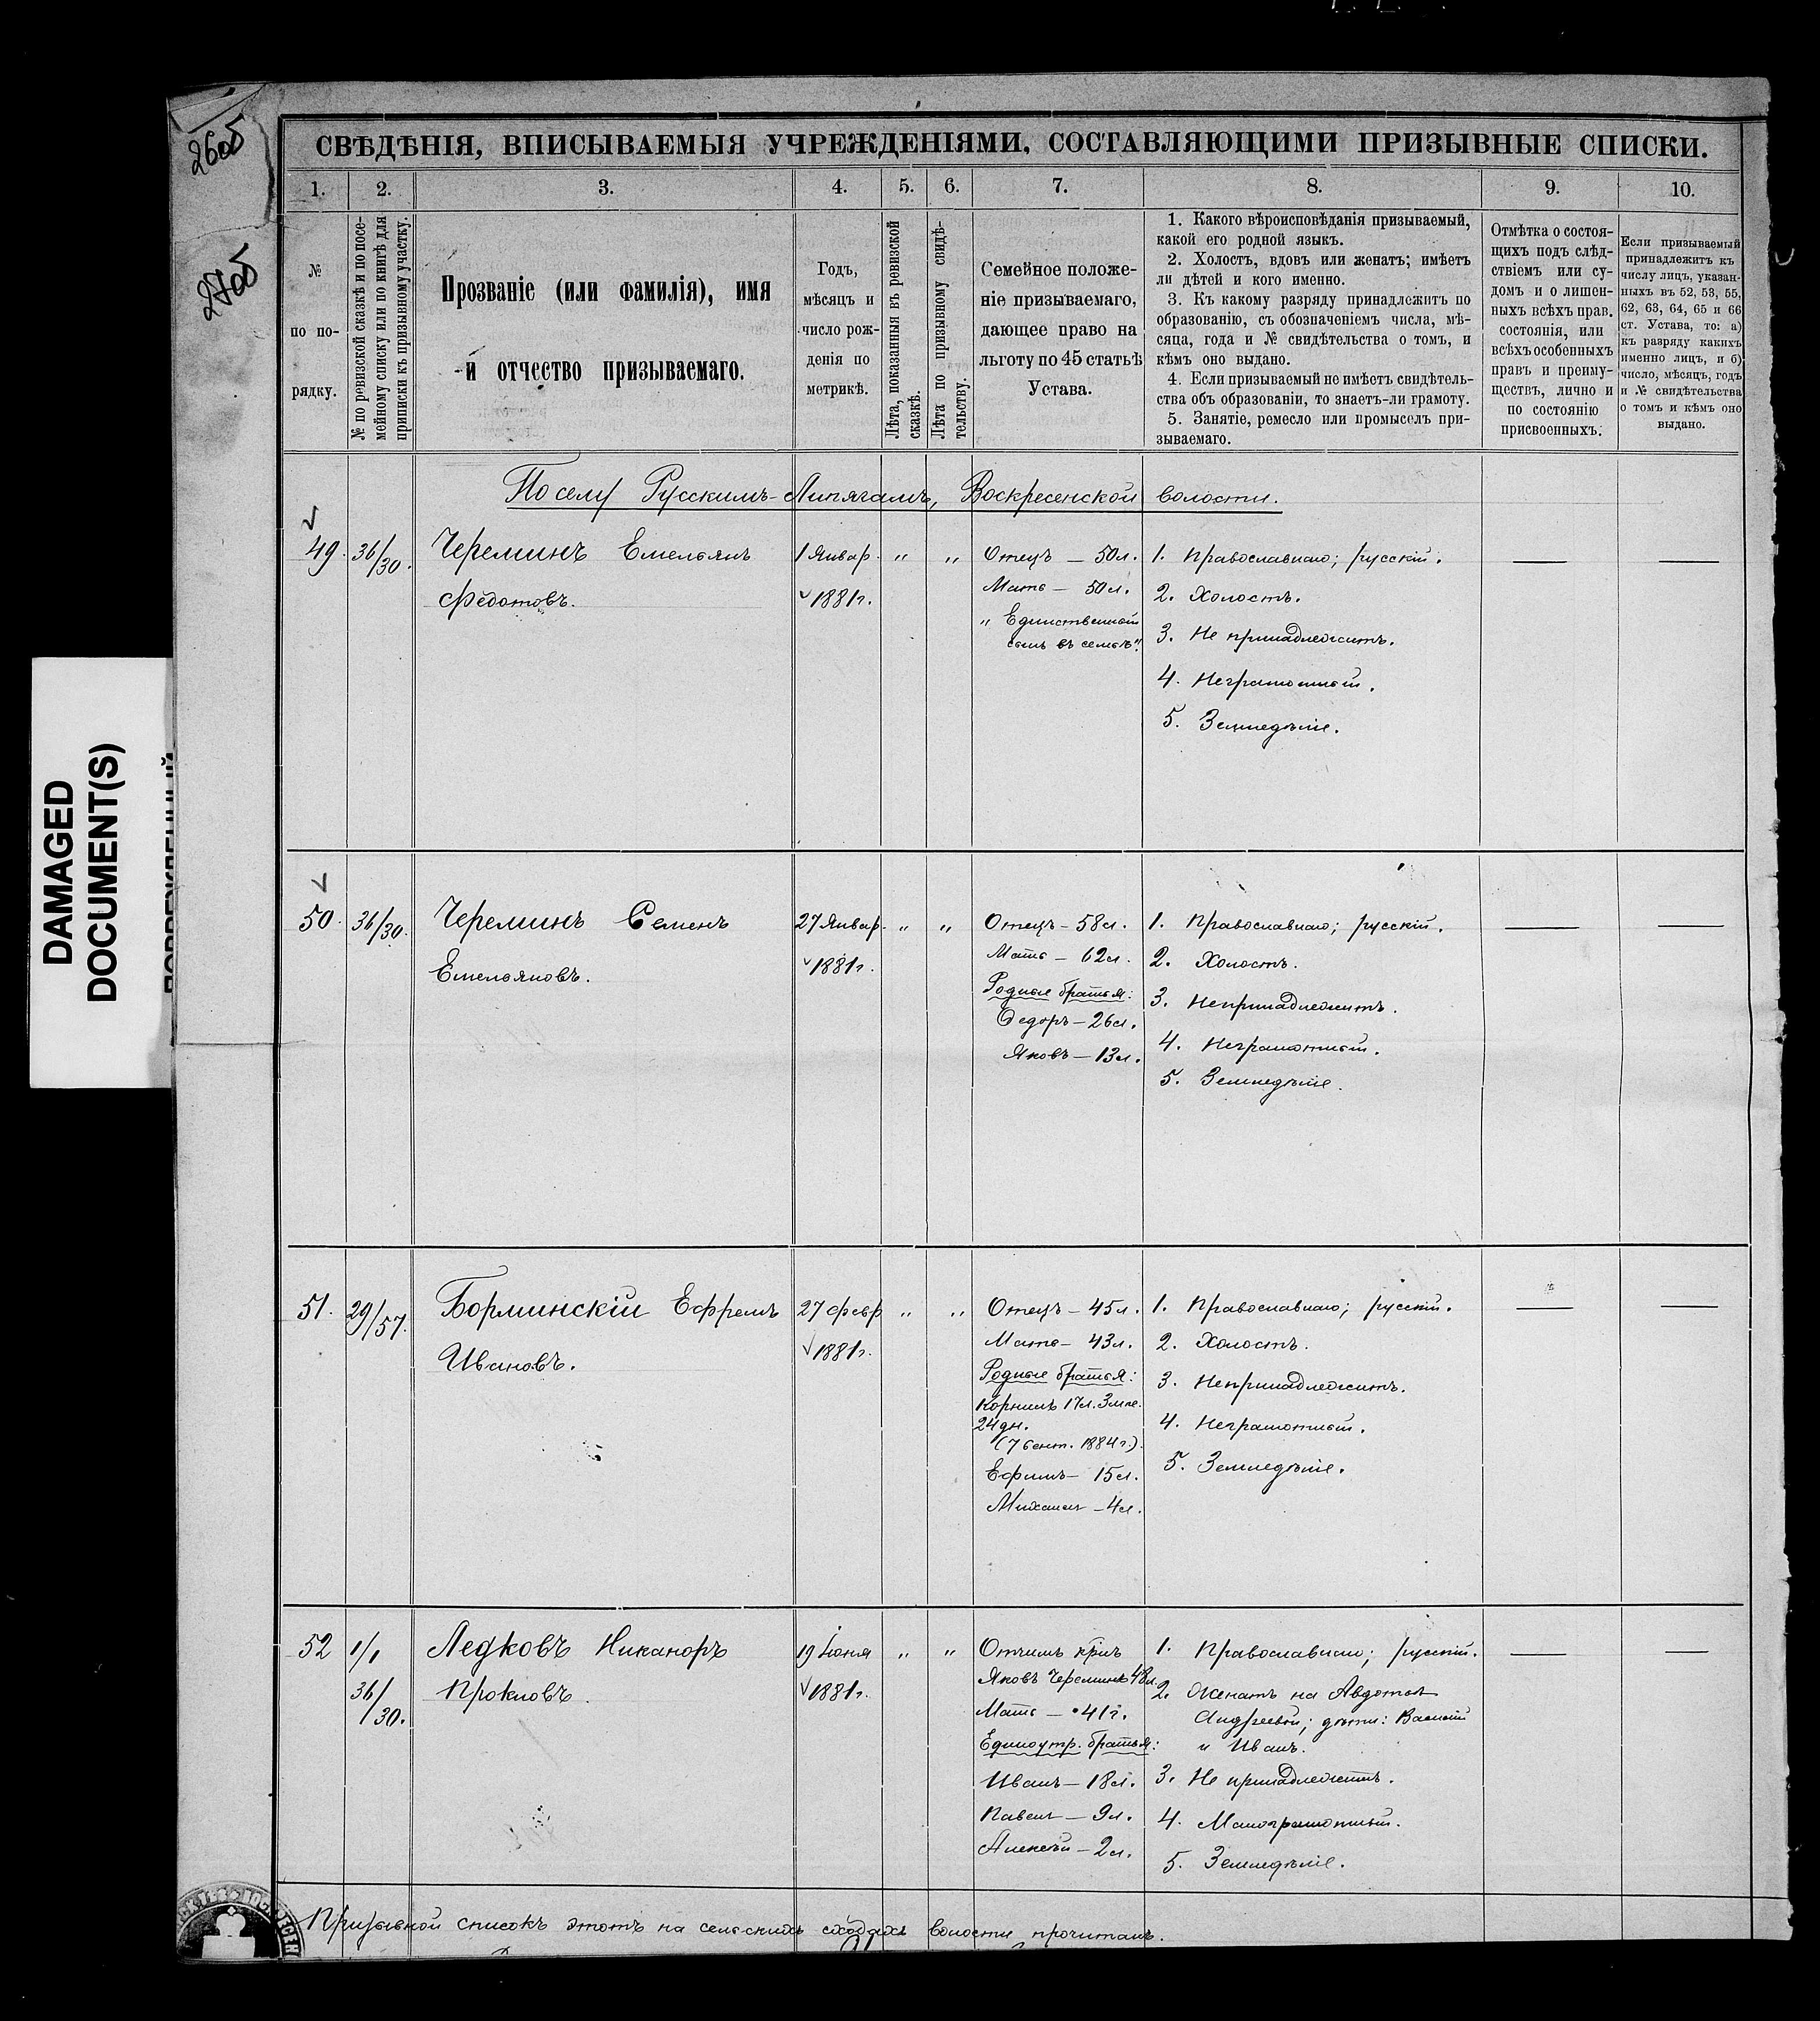 260б
270б
DAMAGED
DOCUMENT(S)
СВѢДѢНІЯ, ВПИСЫВАЕМЫЯ УЧРЕЖДЕНІЯМИ, СОСТАВЛЯЮЩИМИ ПРИЗЫВНЫЕ СПИСКИ.
1. 2. 3. 4. 5. 6. 7. 8. 9. 10.
№
по по-
рядку.
№ по ревизской сказкѣ и по посе-
мейному списку или по книгѣ для
приписки къ призывному участку.
Прозваніе (или фамилія), имя
и отчество призываемаго.
Годъ,
мѣсяцъ и
число рож-
денія по
метрикѣ.
Лѣта, показанныя въ ревизской
сказкѣ.
Лѣта по призывному свидѣ-
тельству.
Семейное положе-
ніе призываемаго,
дающее право на
льготу по 45 статьѣ
Устава.
1. Какого вѣроисповѣданія призываемый,
какой его родной языкъ.
2. Холостъ, вдовъ или женатъ; имѣетъ
ли дѣтей и кого именно.
3. Къ какому разряду принадлежитъ по
образованію, съ обозначеніемъ числа, мѣ-
сяца, года и № свидѣтельства о томъ, и
кѣмъ оно выдано.
4. Если призываемый не имѣетъ свидѣтель-
ства объ образованіи, то знаетъ-ли грамоту.
5. Занятіе, ремесло или промыселъ при-
зываемаго.
Отмѣтка о состоя-
щихъ подъ слѣд-
ствіемъ или су-
домъ и о лишен-
ныхъ всѣхъ прав.
состоянія, или
всѣхъ особенныхъ
правъ и преиму-
ществъ, лично и
по состоянію
присвоенныхъ.
Если призываемый
принадлежитъ къ
числу лицъ, указан-
ныхъ въ 52, 53, 55,
62, 63, 64, 65 и 66
ст. Устава, то: а)
къ разряду какихъ
именно лицъ, и б)
число, мѣсяцъ, годъ
и № свидѣтельства
о томъ и кѣмъ оно
выдано.
По селу Русскимъ-Липягамъ, Воскресенской волости.
49. 36/30.
Череминъ Емельянъ
Федотовъ.
1 Январ.
1881г.
" "
Отецъ — 50л.
Мать — 50л.
"Единственный
сынъ въ семьѣ".
1. Православнаго; русскій.
2. Холостъ.
3. Не принадлежитъ.
4. Неграмотный.
5. Земледѣліе.
50. 36/30.
Череминъ Семенъ
Емельяновъ.
27 Январ.
1881г.
" "
Отецъ — 58л.
Мать — 62л.
Родные братья:
Федоръ — 26л.
Яковъ — 13л.
1. Православнаго; русскій.
2. Холостъ.
3. Непринадлежитъ.
4. Неграмотный.
5. Земледѣліе.
51. 29/57.
Борминскій Ефремъ
Ивановъ.
27 февр
1881г.
" "
Отецъ — 45л.
Мать — 43л.
Родные братья:
Корнилъ 17л. 3мѣс.
24дн.
(7 сент. 1884г.).
Ефимъ — 15л.
Михаилъ — 4л.
1. Православнаго; русскій.
2. Холостъ.
3. Непринадлежитъ.
4. Неграмотный.
5. Земледѣліе.
52 1/1
36/30.
Ледковъ Никаноръ
Прокловъ.
19 Іюня
1881г.
" "
Отчимъ
Яковъ Череминъ 48л.
Мать — 41г.
Единоутр. братья:
Иванъ — 18л.
Павелъ — 9л.
Алексѣй — 2л.
1. Православнаго; русскій.
2. Женатъ на Авдотьѣ
Андреевой; дѣти: Василій
и Иванъ.
3. Не принадлежитъ.
4. Малограмотный.
5. Земледѣліе.
Призывной списокъ этотъ на сельскихъ сходахъ волости прочитанъ.